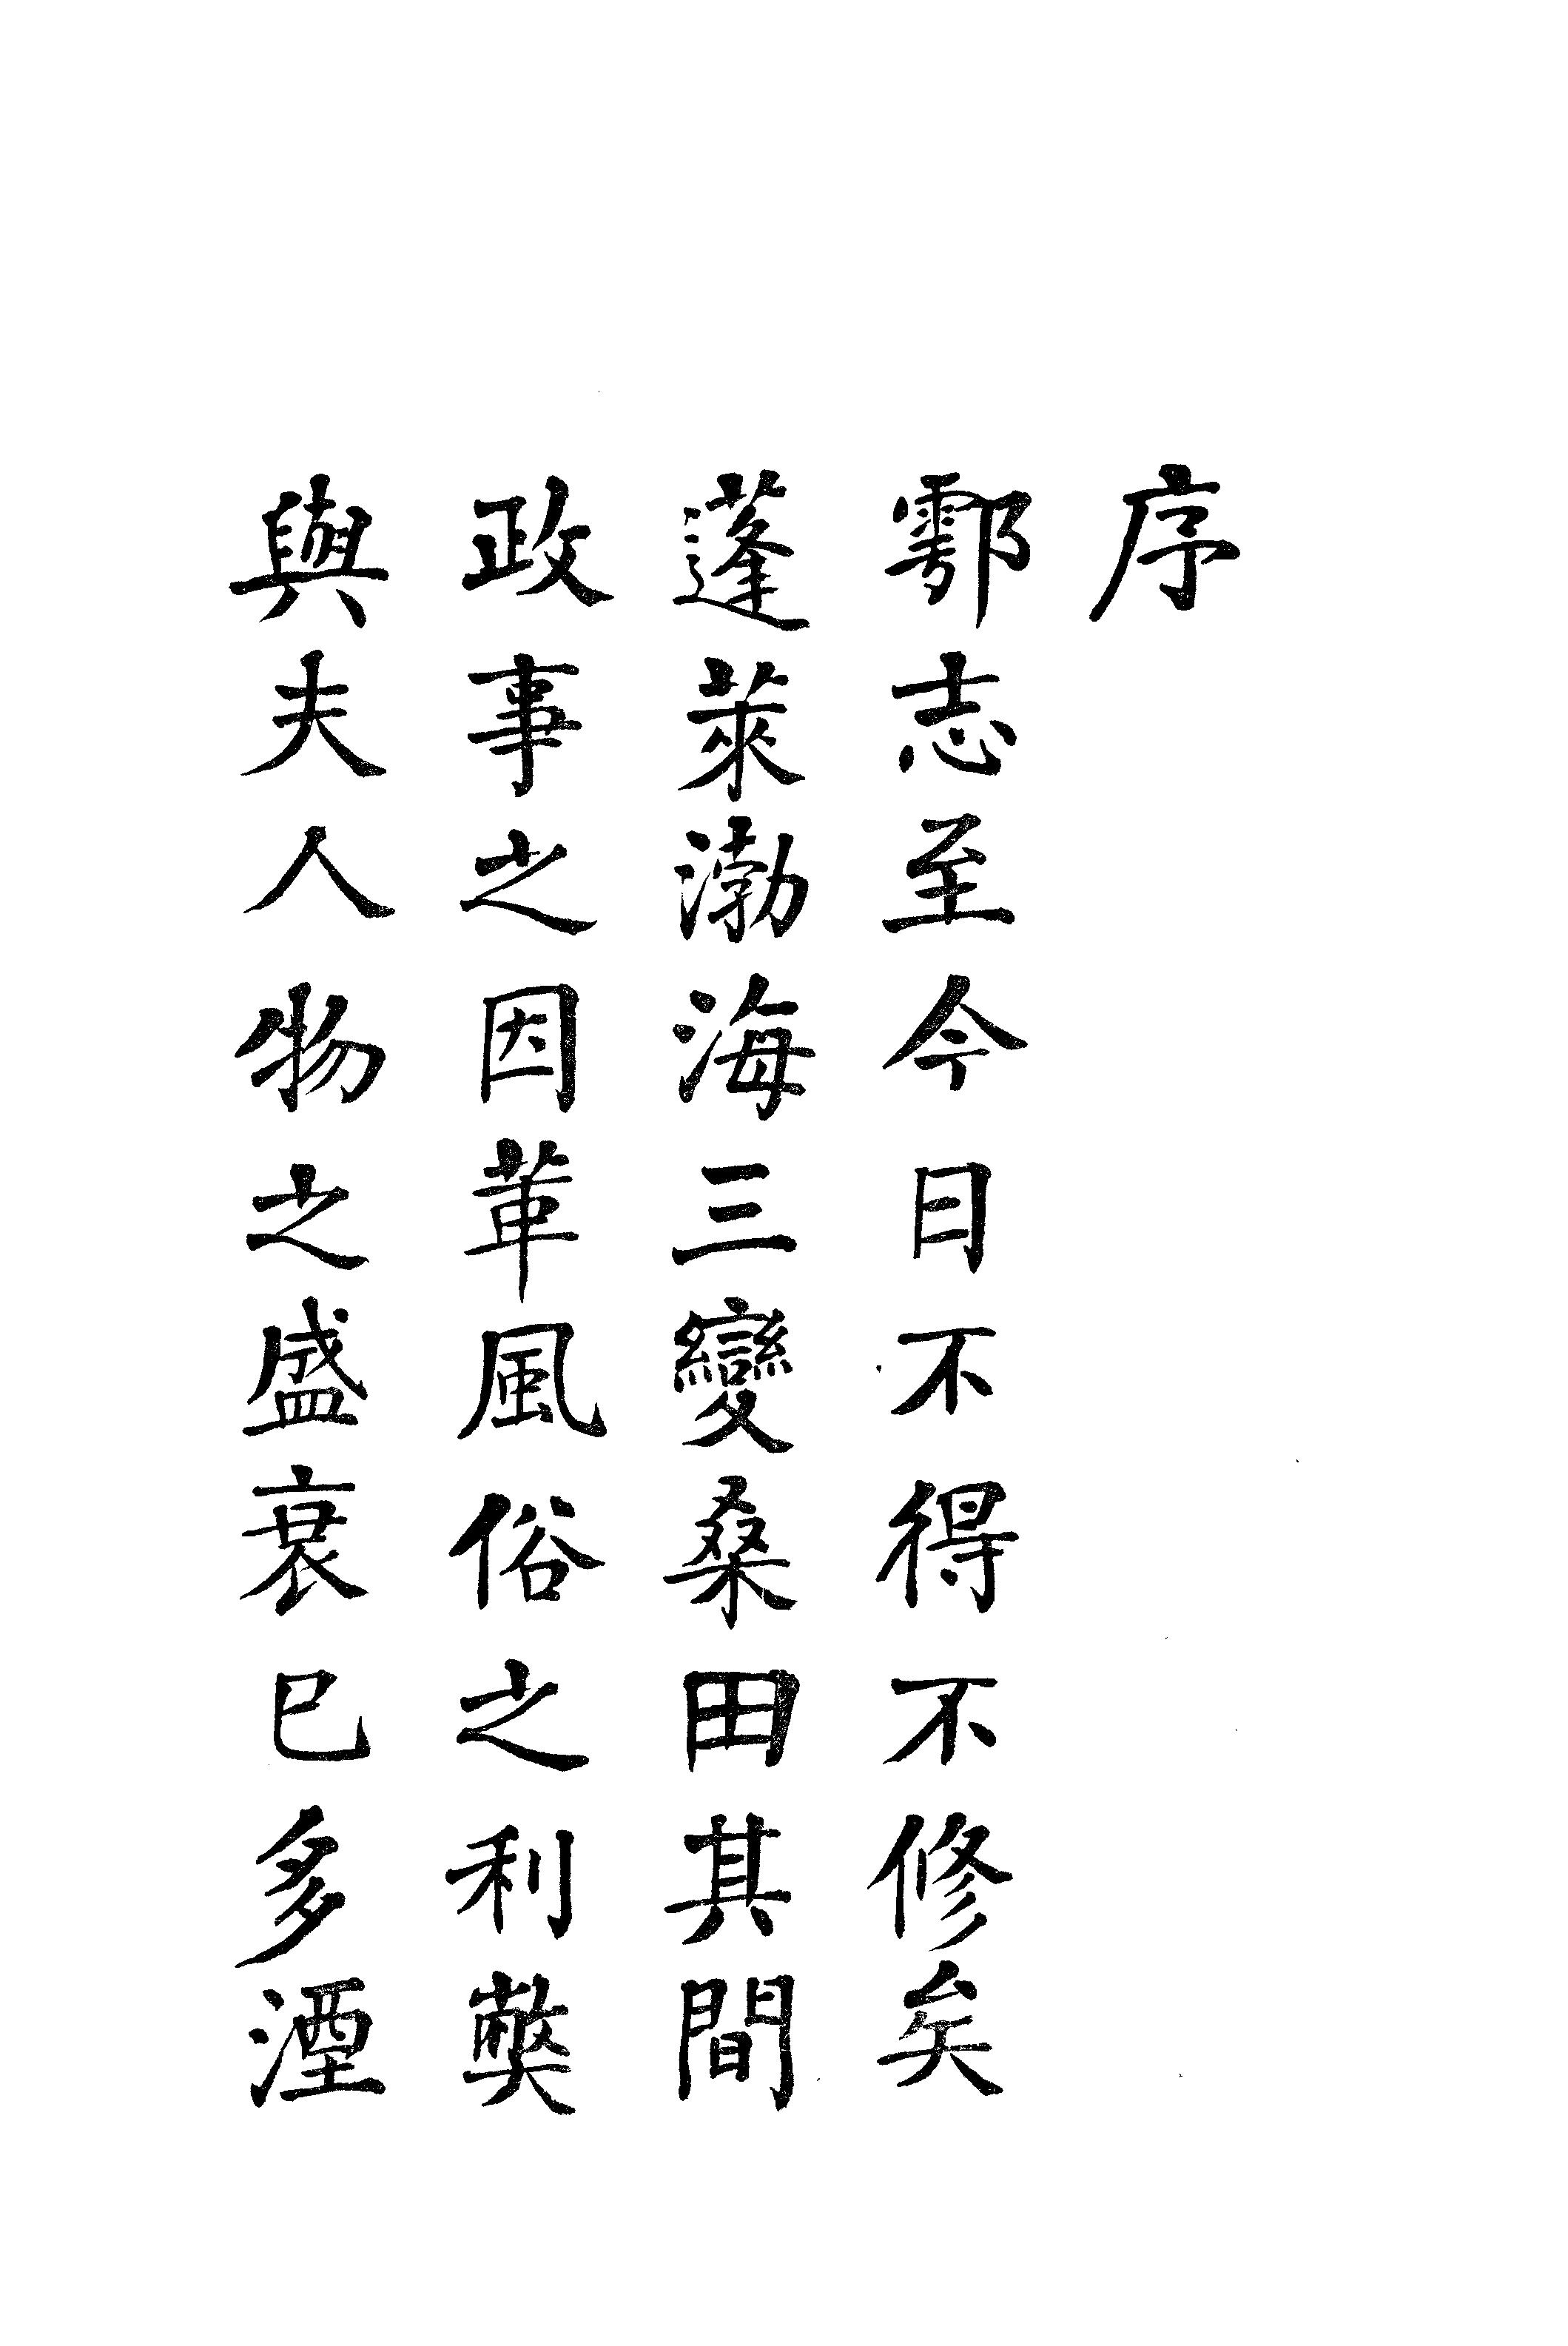 序
鄠志至今日不得不修矣
蓬萊渤海三變桑田其間
政事之因革風俗之利獘
與夫人物之盛衰已多湮